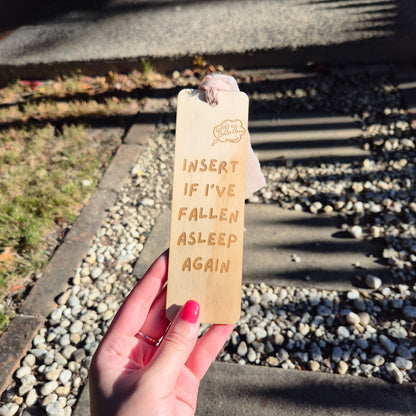 ZZZ
INSERT
IF I'VE
FALLEN
ASLEEP
AGAIN